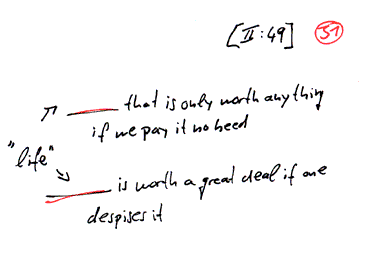 [II:49] 51
that is only worth anything
if we pay it no heed
"life"
is worth a great deal if one
despises it